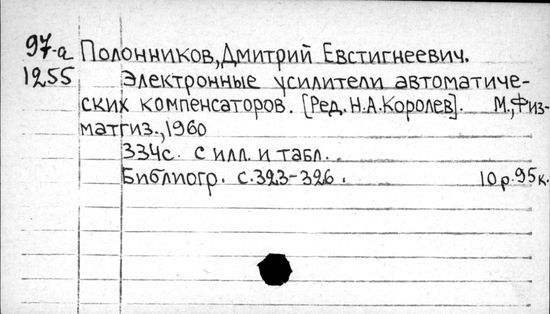 97-а Полонников, Дмитрий Евстигнеевич.
1255 Электронные усилители автоматиче-
ских компенсаторов. [Ред. Н.А.Королев]. М., Физ-
матгиз., 1960
334с. с илл. и табл.
Библиогр. с.323-326. 10р.95к.